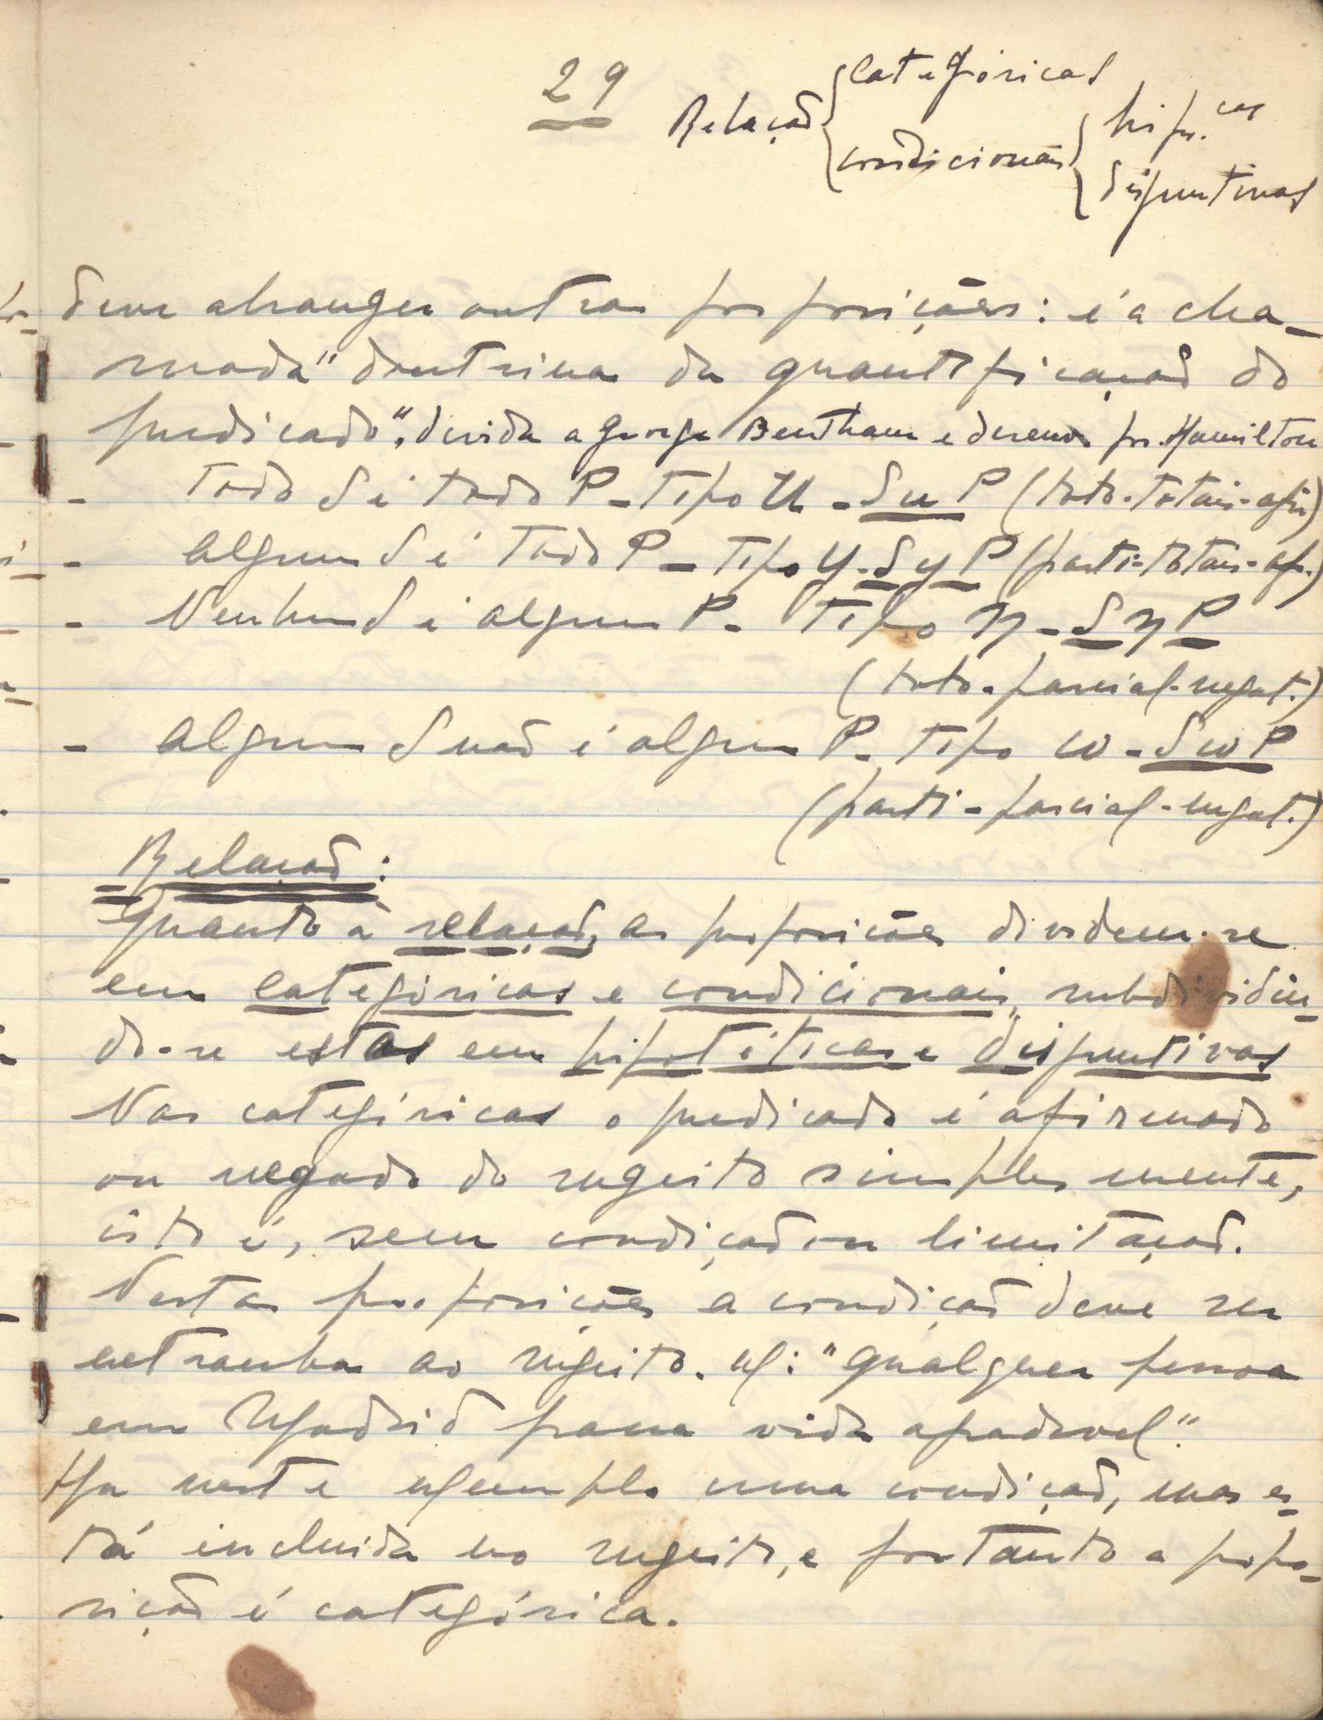 29
Relação { categóricas
condicionais { hip.cas
disjuntivas
devem abranger outras proposições: é a cha-
mada "doutrina da quantificação do
predicado", devida a George Bentham e desenv. por Hamilton
- Todo S é todo P - Tipo U - S u P (toto-totais-afir)
- Algum S é todo P - Tipo Y - S y P (parti-totais-af.)
- Nenhum S é algum P - Tipo η - S η P
(toto-parcial-negat.)
- Algum S não é algum P - Tipo ω - S ω P
(parti-parcial-negat.)
Relação:
Quanto à relação, as proposições dividem-se
em categóricas e condicionais, subdividin-
do-se estas em hipotéticas e disjuntivas
Nas categóricas o predicado é afirmado
ou negado do sugeito simplesmente,
isto é, sem condição ou limitação.
Nestas proposições a condição deve ser
extranha ao sugeito. ex: "Qualquer pessoa
em Madrid passa vida agradavel".
Ha neste exemplo uma condição, mas es-
tá incluida no sugeito, e portanto a propo-
sição é categórica.